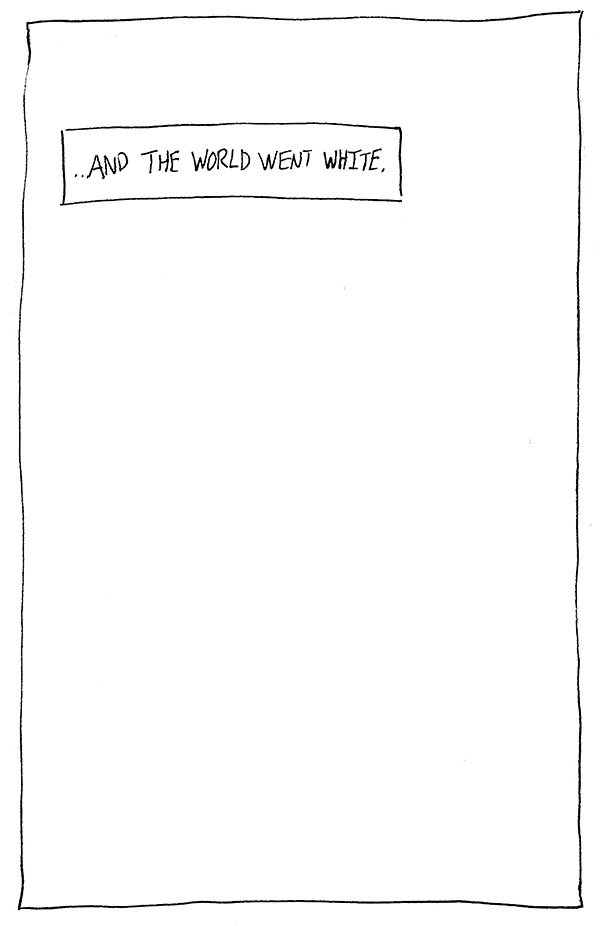 ..AND THE WORLD WENT WHITE.